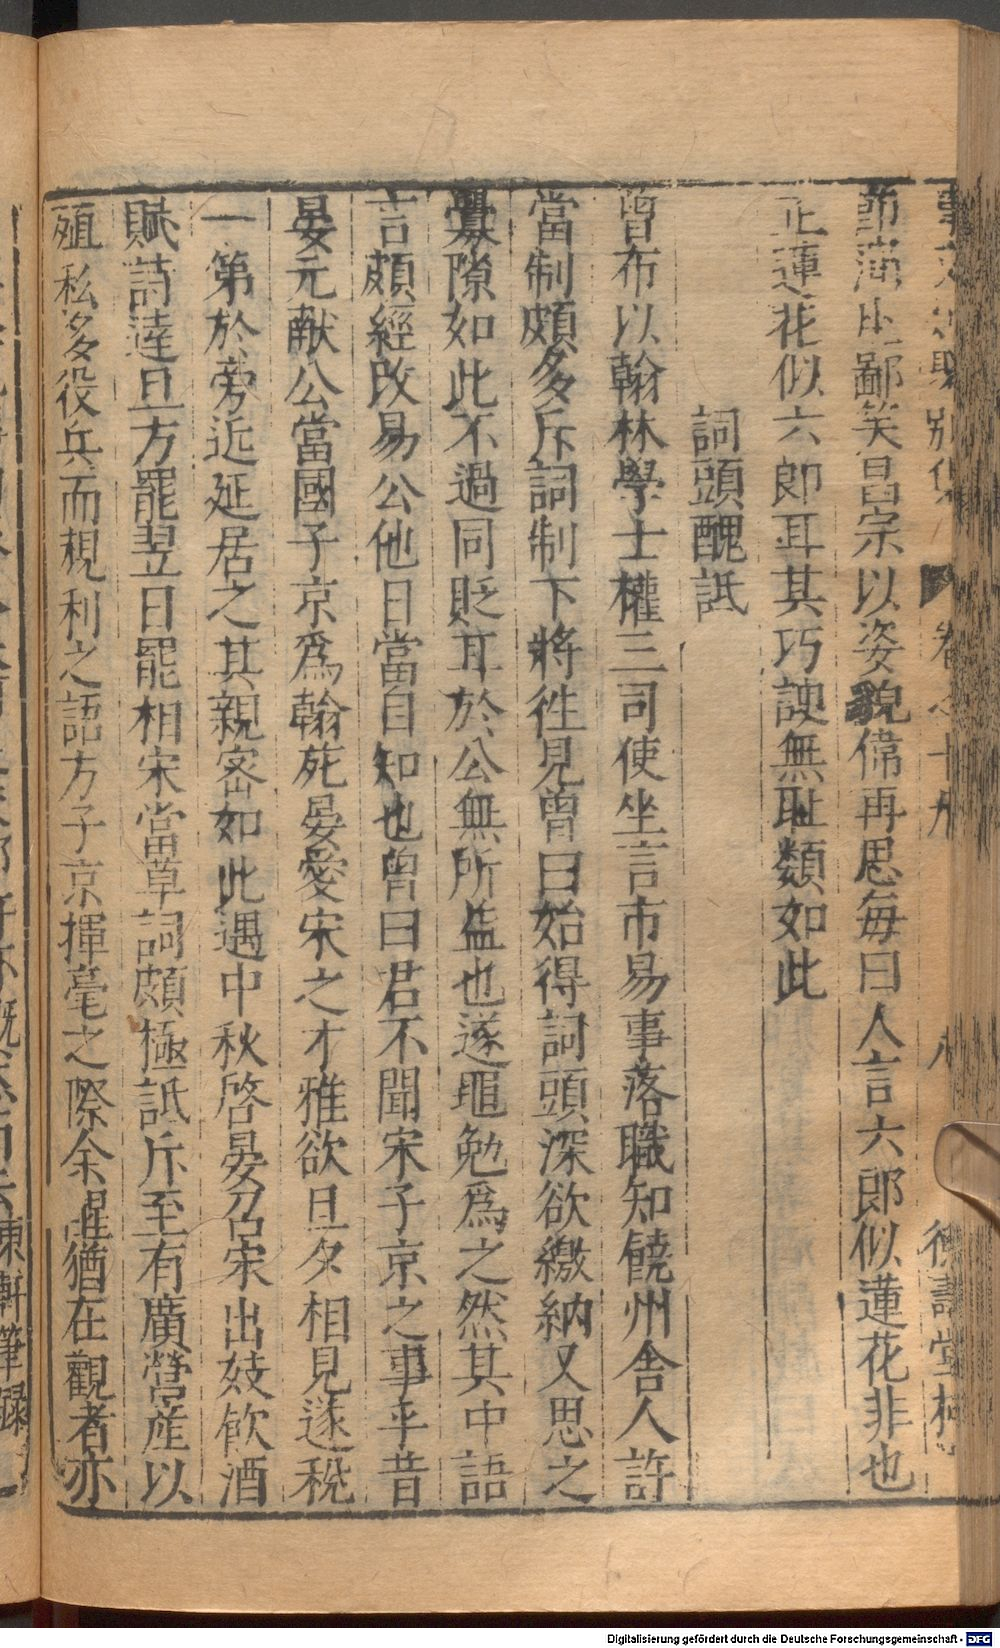 事文類聚別集 卷之十九 八 德壽堂梓
節滿座鄙笑昌宗以姿貌倖再思每曰人言六郎似蓮花非也
正蓮花似六郎耳其巧諛無耻類如此
詞頭醜詆
曾布以翰林學士權三司使坐言市易事落職知饒州舍人許
當制頗多斥詞制下將徃見曾曰始得詞頭深欲繳納又思之
釁隙如此不過同貶耳於公無所益也遂黽勉爲之然其中語
言頗經改易公他日當自知也曾曰君不聞宋子京之事乎昔
晏元献公當國子京爲翰苑晏愛宋之才雅欲旦夕相見遂稅
一第於旁近延居之其親密如此遇中秋啓晏召宋出妓飲酒
賦詩達旦方罷翌日罷相宋當草詞頗極詆斥至有廣營産以
殖私多役兵而規利之語方子京揮毫之際余酲猶在觀者亦
東軒筆錄
Digitalisierung gefördert durch die Deutsche Forschungsgemeinschaft - DFG